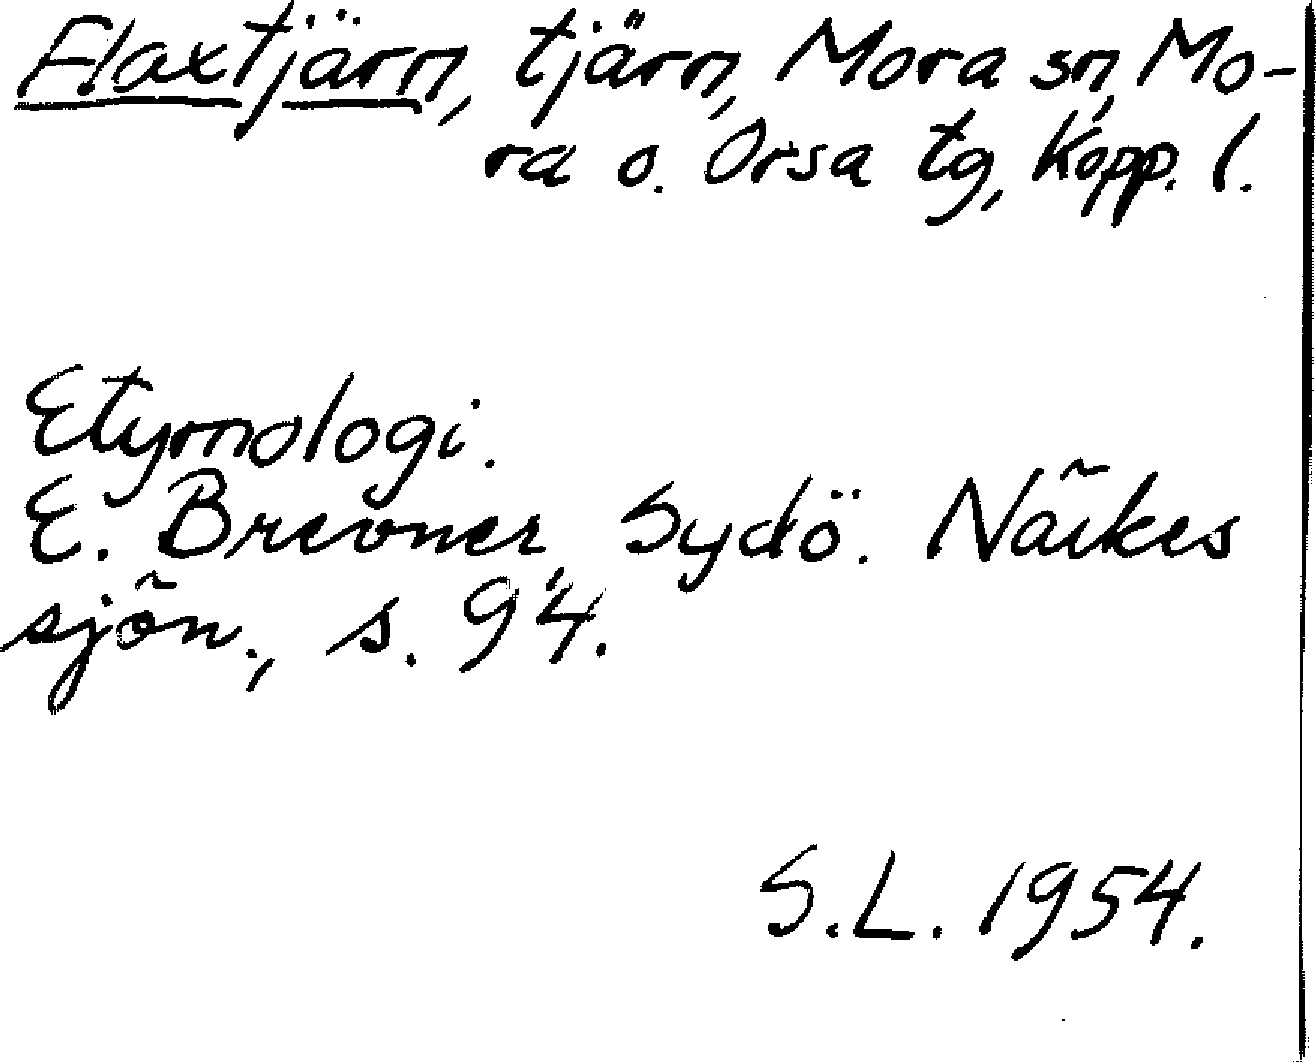 Flaxtjärn, tjärn, Mora sn, Mo-
ra o. Orsa tg, Kopp. l.
Etymologi.
E. Brevner, Sydö. Närkes
sjön., s. 94.
S.L. 1954.